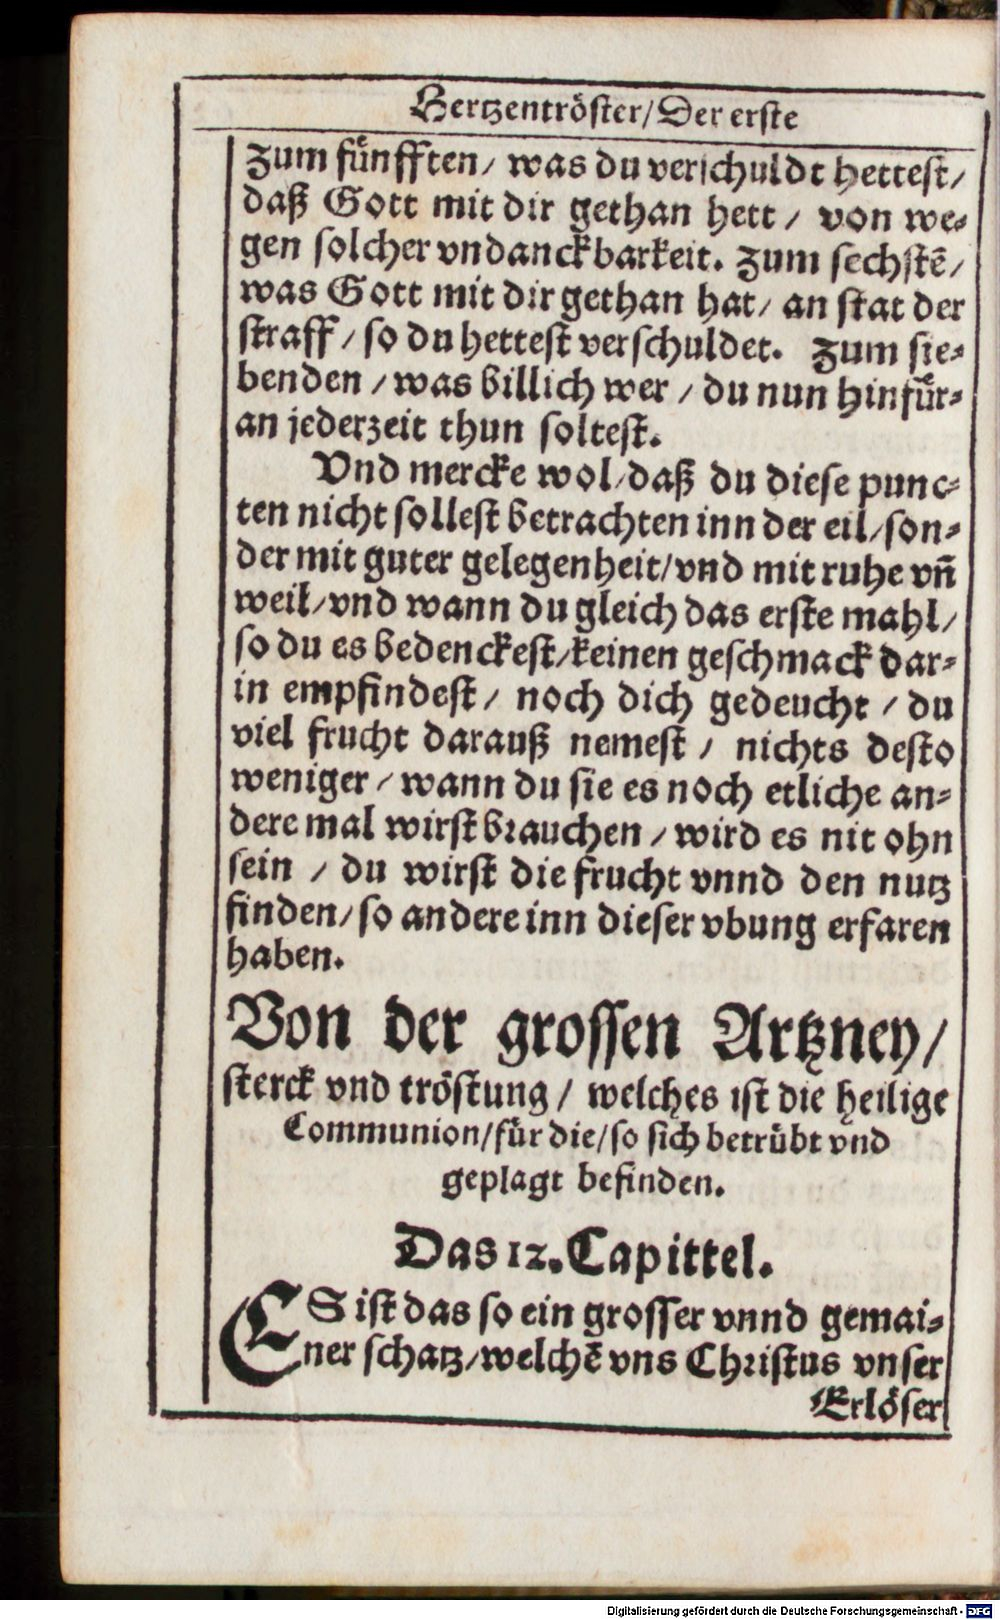 Hertzentröster/Der erste
Zum fünfften/ was du verschuldt hettest/
daß Gott mit dir gethan hett/ von we-
gen solcher vndanckbarkeit. Zum sechstē/
was Gott mit dir gethan hat/ an stat der
straff/ so du hettest verschuldet. Zum sie-
benden/ was billich wer/ du nun hinfür-
an jederzeit thun soltest.
Vnd mercke wol/daß du diese punc-
ten nicht sollest betrachten inn der eil/son-
der mit guter gelegenheit/vnd mit ruhe vñ
weil/vnd wann du gleich das erste mahl/
so du es bedenckest/keinen geschmack dar-
in empfindest/ noch dich gedeucht/ du
viel frucht darauß nemest/ nichts desto
weniger/ wann du sie es noch etliche an-
dere mal wirst brauchen/ wird es nit ohn
sein/ du wirst die frucht vnnd den nutz
finden/so andere inn dieser vbung erfaren
haben.
Von der grossen Artzney/
sterck vnd tröstung/ welches ist die heilige
Communion/für die/so sich betrübt vnd
geplagt befinden.
Das 12. Capittel.
ES ist das so ein grosser vnnd gemai-
ner schatz/welchē vns Christus vnser
Erlöser
Digitalisierung gefördert durch die Deutsche Forschungsgemeinschaft - DFG